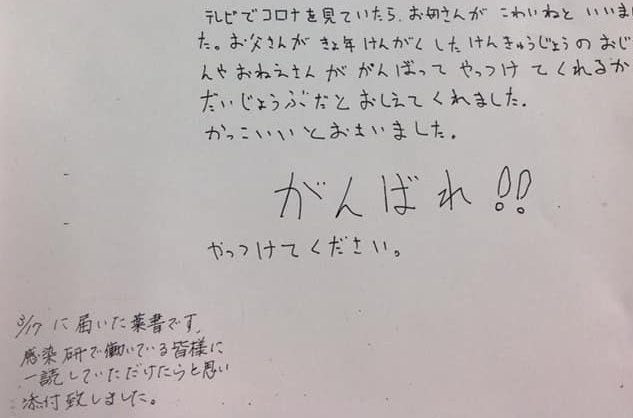 テレビでコロナを見ていたら、お母さんが こわいねと いいま
た。お父さんが きょ年 けんがく した けんきゅうじょう の おじ
んや おねえさん が がんばって やっつけ てくれるか
だいじょうぶだと おしえてくれました。
かっこいいと おもいました。
がんばれ!!
やっつけてください。
3/17 に届いた葉書です。
感染研で働いている皆様に
一読していただけたらと思い
添付致しました。